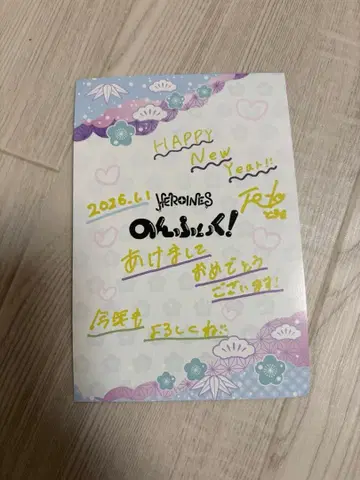 HAPPY
New
Year!!
2026.1.1
HEROINES
のんふぃく!
あけまして
おめでとう
ございます!
今年も
よろしくね!!